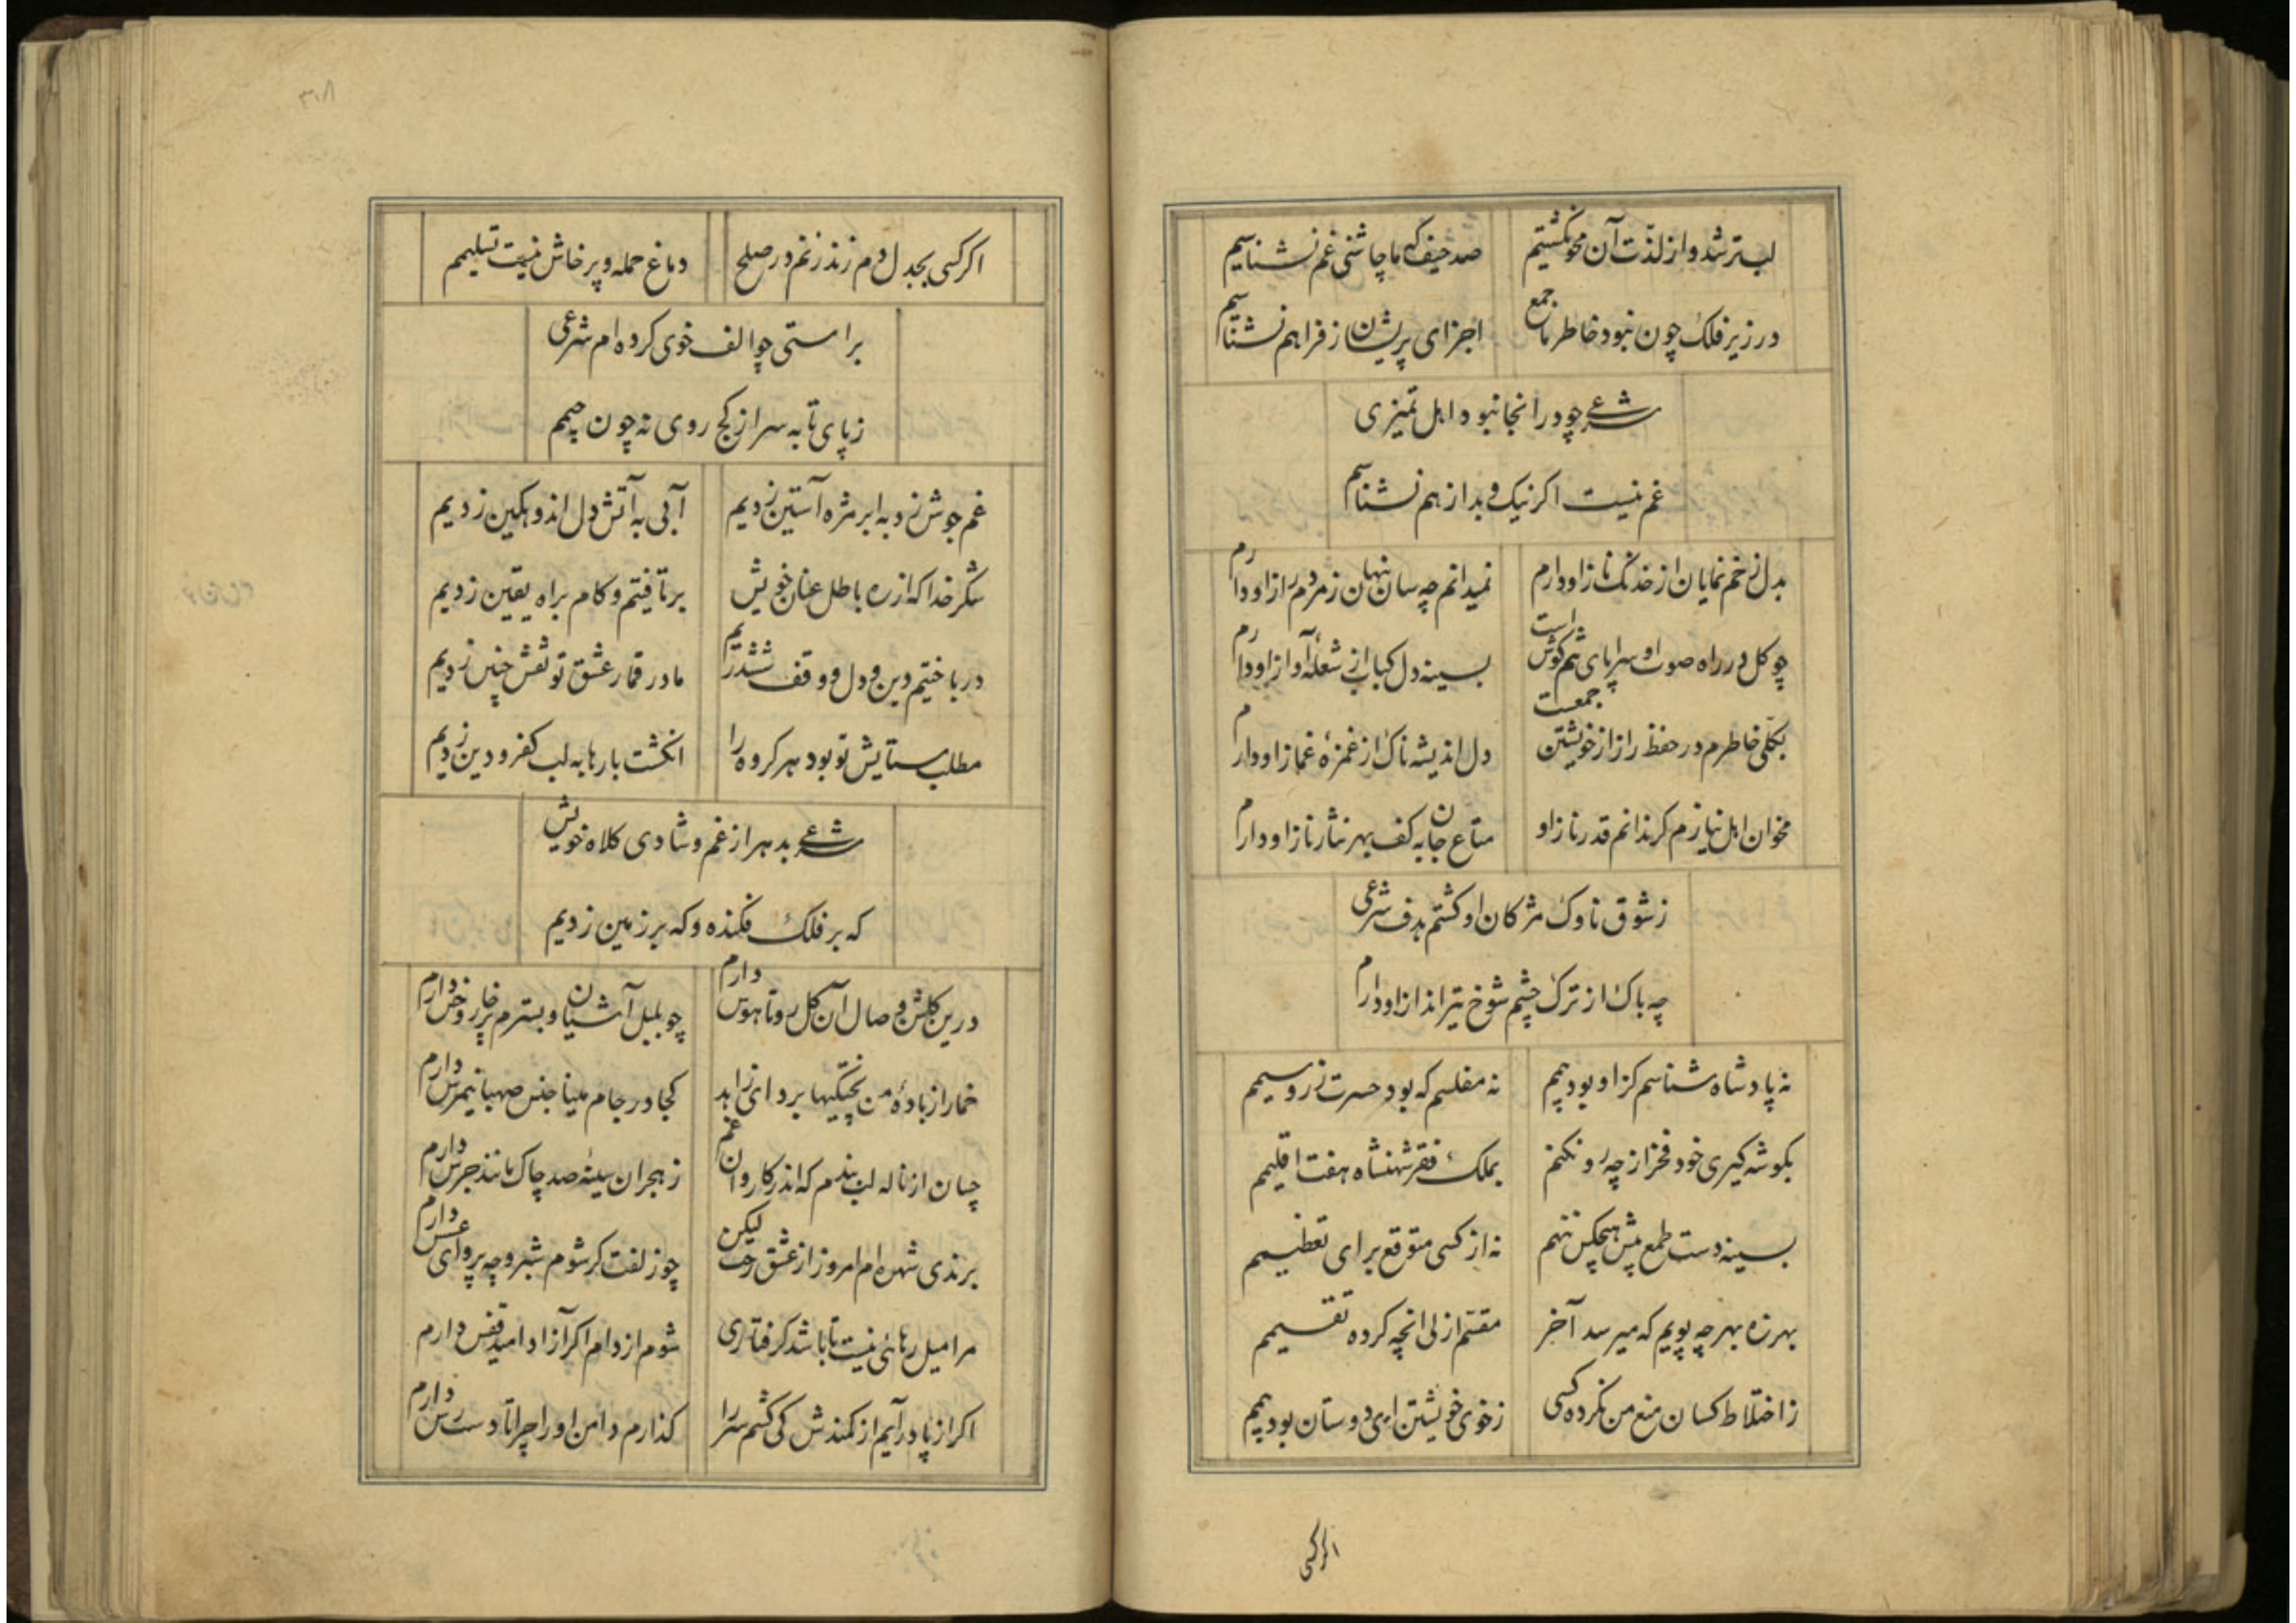 لب تر شد و از لذت آن محو نکشتیم صد حیف که ما چاشنی غم نشناسیم
در زیر فلک چون نبود خاطر ما جمع اجزای پریشان ز فراهم نشناسیم
شرعی چو در انجا نبود اهل تمیزی
غم نیست اکر نیک و بد از هم نشناسیم
بدل زخم نمایان از خدنک ناز او دارم نمیدانم چه سان پنهان ز مردم راز او دارم
چو کل در راه صوت او سراپای تنم کوش است بسینه دل کباب از شعلهٔ آواز او دارم
بکلی خاطرم در حفظ راز از خویشتن جمعست دل اندیشه ناک از غمزهٔ غماز او دارم
مخوان اهل نیازم کر ندانم قدر ناز او متاع جان به کف بهر نثار ناز او دارم
ز شوق ناوک مژکان او کشتم هدف شرعی
چه باک از ترک چشم شوخ تیرانداز او دارم
نه پادشاه شناسم کز او بود بیمم نه مفلسم که بود حسرت زر و سیمم
بکوشه کیری خود فخر از چه رو نکنم بملک فقر شهنشاه هفت اقلیمم
بسینه دست طمع پیش هیچکس ننهم نه از کسی متوقع برای تعظیمم
بهرزه بهر چه پویم که میرسد آخر مقسم ازلی انچه کرده تقسیمم
ز اختلاط کسان منع من نکرده کسی ز خوی خویشتن ای دوستان بود بیمم
اکر کسی
۳۱۸
اکر کسی بجدل دم زند زنم در صلح دماغ حمله و پرخاش نیست تسلیمم
براستی چو الف خوی کرده ام شرعی
ز پای تا به سر از کج روی نه چون جیمم
غم جوش زد به ابر مژه آستین زدیم آبی به آتش دل اندوهکین زدیم
شکر خدا که از ره باطل عنان خویش برتافتیم و کام براه یقین زدیم
درباختیم دین و دل و وقف ششدریم ما در قمار عشق تو نقش چنین زدیم
مطلب ستایش تو بود هر کروه را انکشت بارها به لب کفر و دین زدیم
شرعی بدهر از غم و شادی کلاه خویش
که بر فلک فکنده و که بر زمین زدیم
درین کلشن وصال آن کل رو تا هوس دارم چو بلبل آشیان و بسترم پر خار و خس دارم
خمار از بادهٔ من پختکیها برد ای زاهد کجا در جام مینا جنس صهبا نیمرس دارم
چسان از ناله لب بندم که اندر کاروان غم ز هجران سینهٔ صد چاک مانند جرس دارم
برندی شهره ام امروز از عشق رخت لیکن چو زلفت کر شوم شبرو چه پروای عسس دارم
مرا میل رهائی نیست تا باشد کرفتاری شوم از دام اکر آزاد امید قفس دارم
اکر از پا درآیم از کمندش کی کشم سر را کذارم دامن او را چرا تا دست رس دارم